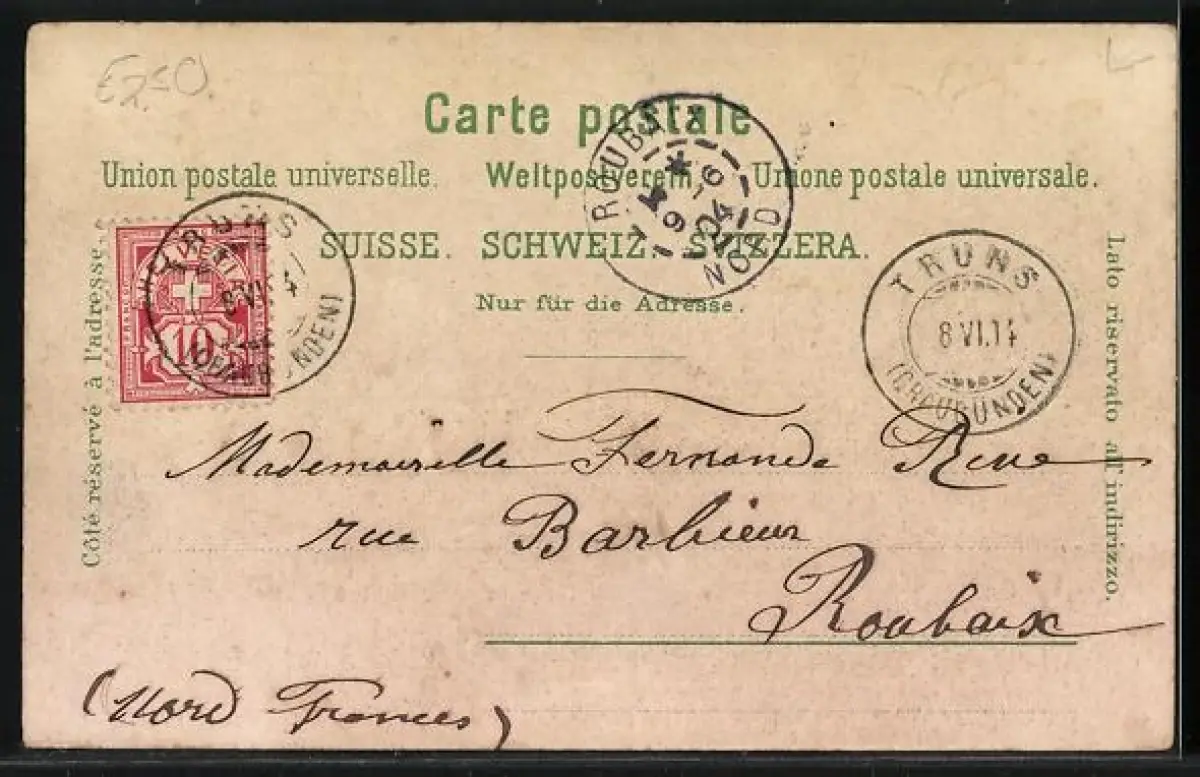 E250
Carte postale
Union postale universelle. Weltpostverein. Unione postale universale.
SUISSE. SCHWEIZ. SVIZZERA.
Nur für die Adresse.
Côté réservé à l'adresse.
Lato riservato all' indirizzo.
FRANCO
10
TRUNS
8 VI. 4
(GRAUBÜNDEN)
ROUBAIX
9-6
04
NORD
TRUNS
8 VI. 14
(GRAUBÜNDEN)
Mademoiselle Fernande
rue Barbieux
Roubaix
(Nord France)